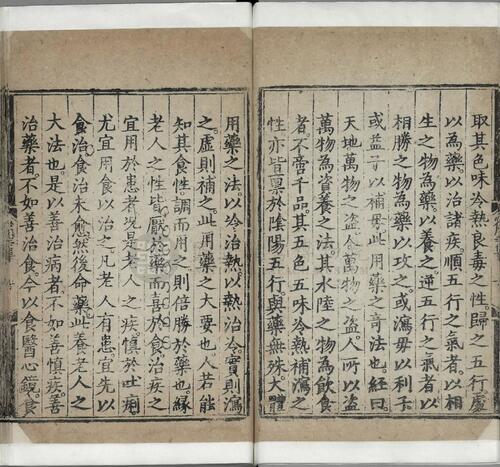 取其色味冷熱良毒之性歸之五行處
以為藥以治諸疾順五行之氣者以相
生之物為藥以養之逆五行之氣者以
相勝之物為藥以攻之或瀉母以利子
或益子以補母此用藥之奇法也經曰
天地萬物之盗人萬物之盗人所以盗
萬物為資養之法其水陸之物為飲食
者不啻千品其五色五味冷熱補瀉之
性亦皆禀於陰陽五行與藥無殊大體
用藥之法以冷治熱以熱治冷實則瀉
之虛則補之此用藥之大要也人若能
知其食性調而用之則倍勝於藥也緣
老人之性皆厭於藥而喜於食以食治疾之
宜用於患者況是老人之疾慎於吐痢
尤宜用食以治之凡老人有患宜先以
食治食治未愈然後命藥此養老人之
大法也是以善治病者不如善慎疾善
治藥者不如善治食今以食醫心鏡食